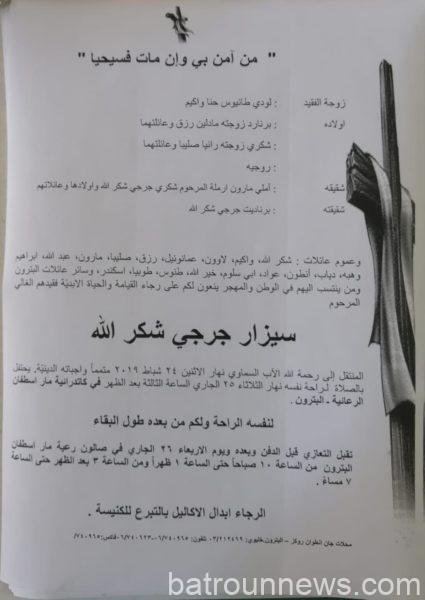 " من آمن بي وإن مات فسيحيا "
زوجة الفقيد : لودي طانيوس حنا واكيم
اولاده : برنارد زوجته مادلين رزق وعائلتهما
: شكري زوجته رانيا صليبا وعائلتهما
: روجيه
شقيقه : أملي مارون ارملة المرحوم شكري جرجي شكر الله واولادها وعائلاتهم
شقيقته : برناديت جرجي شكر الله
وعموم عائلات : شكر الله، واكيم، لاوون، عمانوئيل، رزق، صليبا، مارون، عبد الله، ابراهيم
وهبه، دياب، أنطون، عواد، ابي سلوم، خير الله، طنوس، طوبيا، اسكندر، وسائر عائلات البترون
ومن ينتسب اليهم في الوطن والمهجر ينعون لكم على رجاء القيامة والحياة الابديّة فقيدهم الغالي
المرحوم
سيزار جرجي شكر الله
المنتقل إلى رحمة الله الأب السماوي نهار الاثنين ٢٤ شباط ٢٠١٩ متمماً واجباته الدينيّة. يحتفل
بالصلاة لراحة نفسه نهار الثلاثاء ٢٥ الجاري الساعة الثالثة بعد الظهر في كاتدرائية مار اسطفان
الرعائية ـ البترون .
لنفسه الراحة ولكم من بعده طول البقاء
تقبل التعازي قبل الدفن وبعده ويوم الاربعاء ٢٦ الجاري في صالون رعية مار اسطفان
البترون من الساعة ١٠ صباحاً حتى الساعة ١ ظهراً ومن الساعة ٣ بعد الظهر حتى الساعة
٧ مساءً .
الرجاء ابدال الاكاليل بالتبرع للكنيسة .
محلات جان انطوان روكز – البترون خليوي: ٠٣/٢١٢٤٦٩ تلفون: ٠٦/٧٤٠٩٦٥-٠٦/٧٤٠٦٢٣ فاكس: ٠٦/٧٤٠٩٦٥
batrounnews.com